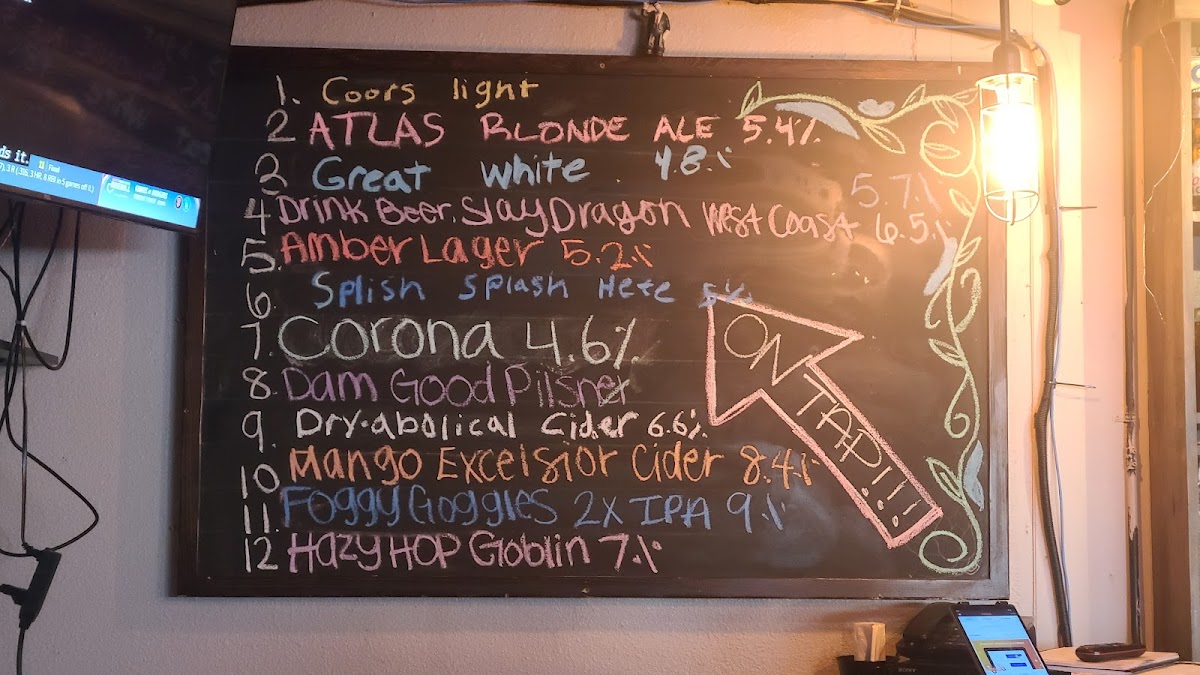 ds it.
11 Final
7), 3 R (.306, 3 HR, 8 RBI in 5 games off it.)
1. Coors light
2 ATLAS BLONDE ALE 5.4%
3 Great White . 4.8%
5.7%
4 Drink Beer, Slay Dragon West Coast 6.5%
5. Amber Lager 5.2%
6. Splish Splash Hefe 5%
7. Corona 4.6%
8. Dam Good Pilsner
9. Dry-abolical Cider 6.6%
10 Mango Excelsior Cider 8.4%
11. Foggy Goggles 2x IPA 9%
12 Hazy Hop Goblin 7%
ON TAP!!!
SONY